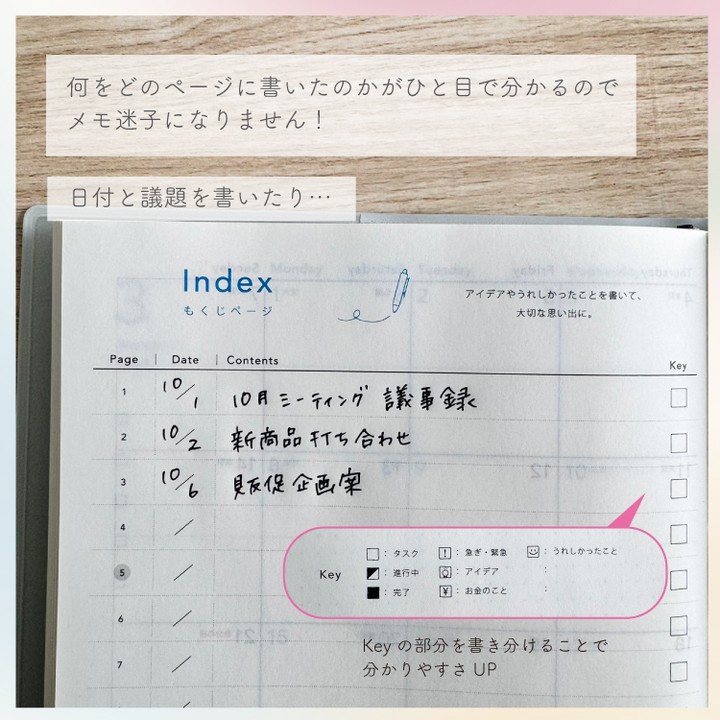 何をどのページに書いたのかがひと目で分かるので
メモ迷子になりません！
日付と議題を書いたり…
Index
もくじページ
アイデアやうれしかったことを書いて、
大切な思い出に。
Page | Date | Contents Key
1 10/1 10月ミーティング 議事録
2 10/2 新商品打ち合わせ
3 10/6 販促企画案
4 /
5 /
6 /
7 /
Key
□ : タスク ! : 急ぎ・緊急 : うれしかったこと
: 進行中 : アイデア :
■ : 完了 ¥ : お金のこと :
Keyの部分を書き分けることで
分かりやすさUP